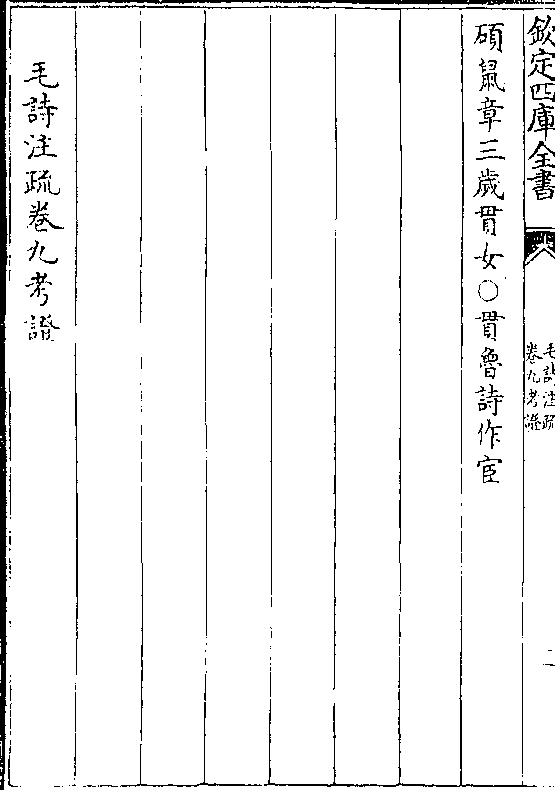 欽定四庫全書
毛詩注疏
卷九考證
二
碩䑕章三歲貫女○貫魯詩作宦
毛詩注疏卷九考證